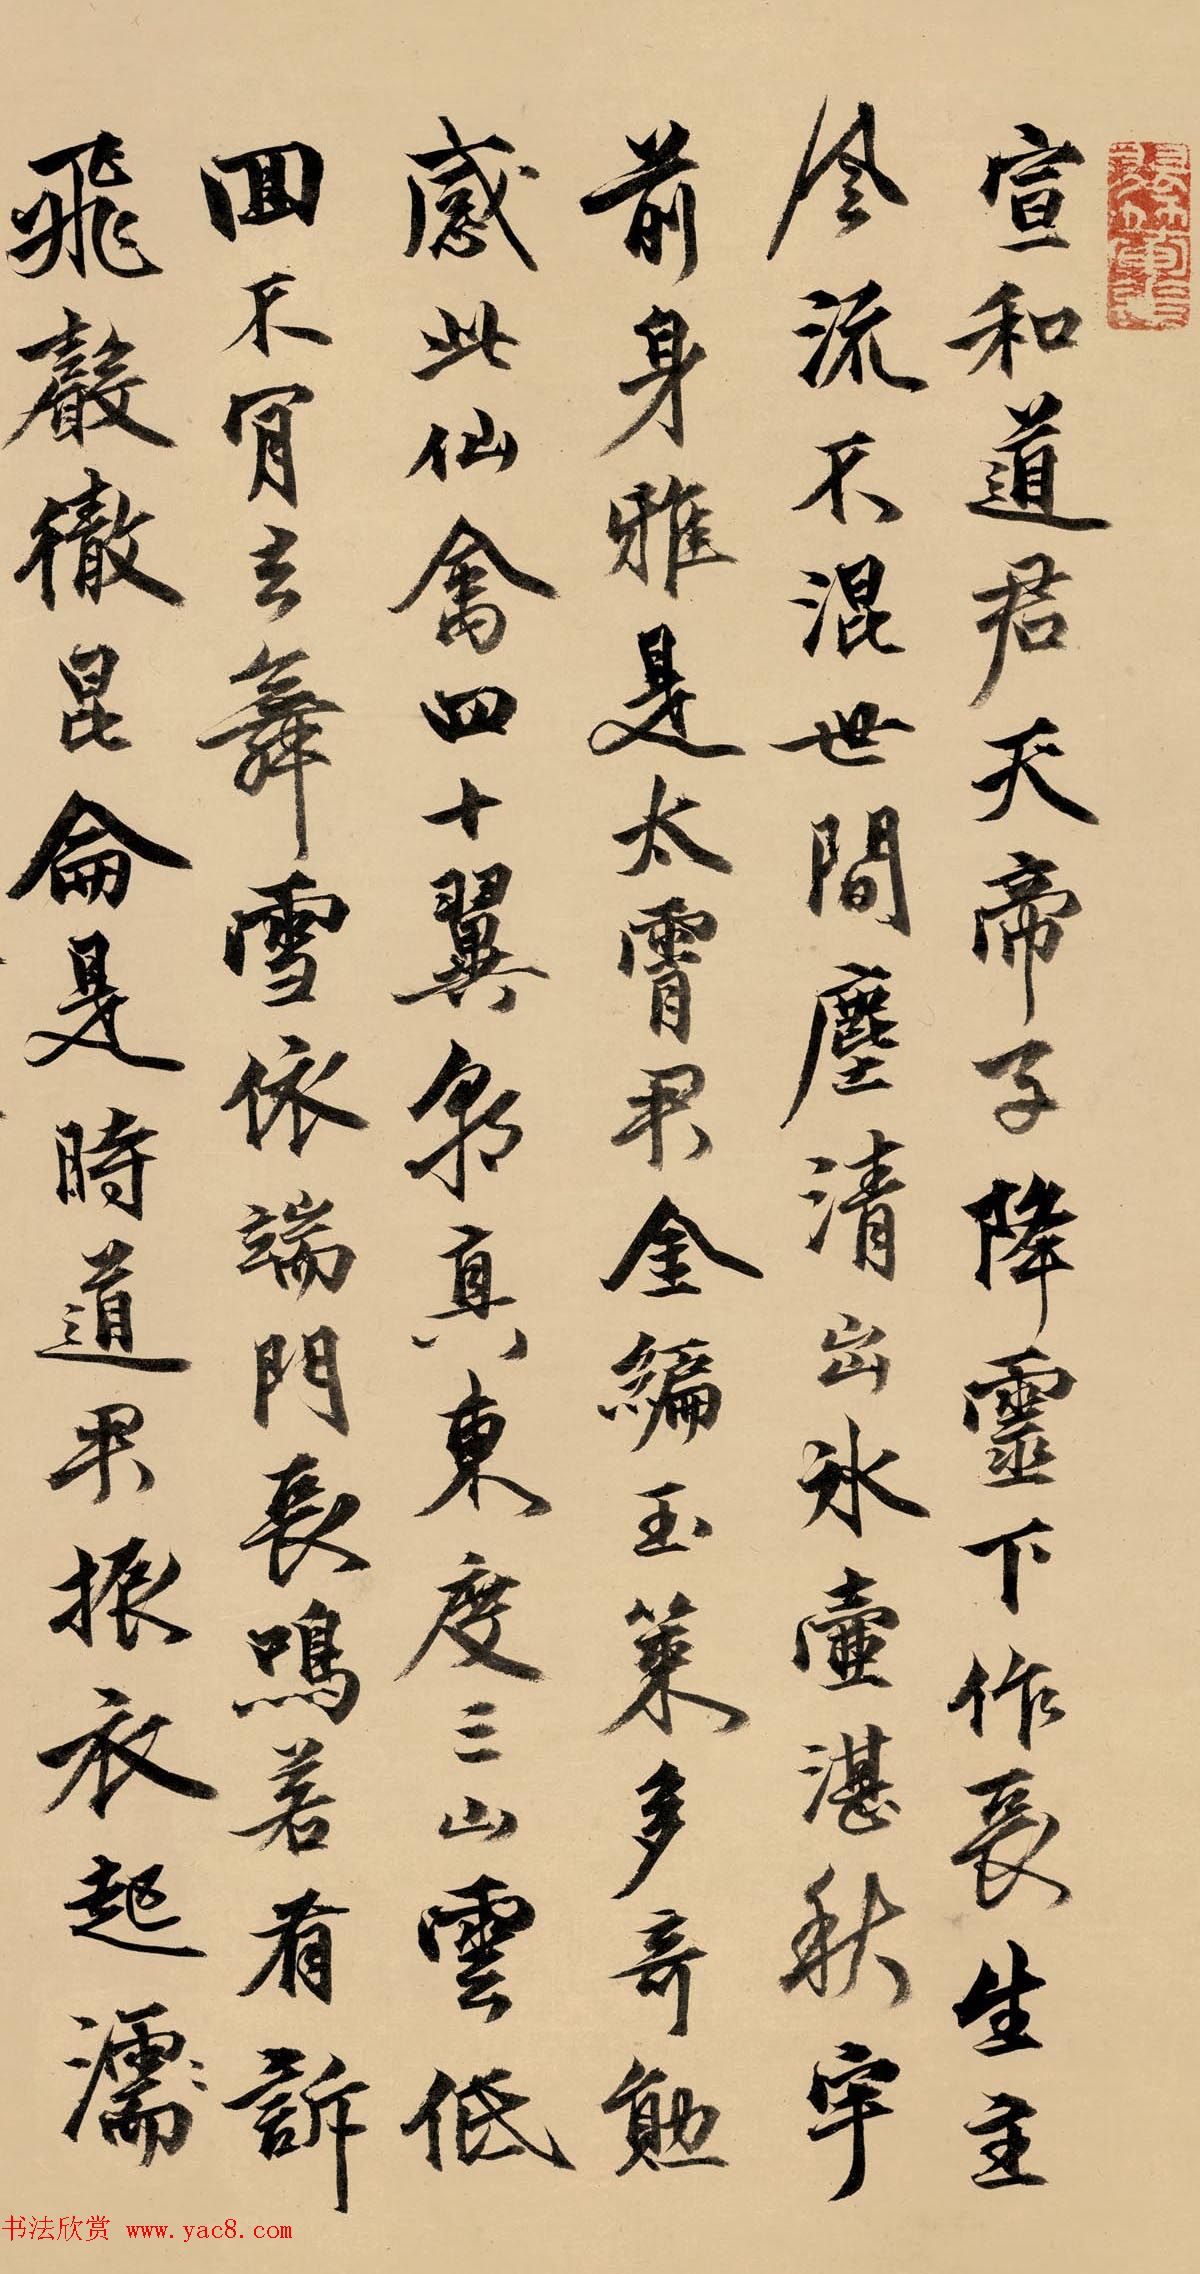 宣和道君天帝子降靈下作長生主
風流不混世間塵清出冰壺湛秋宇
前身雅是太霄君金編玉策多奇勳
感此仙禽四十翼朝真東度三山雲低
回不肯去舞雪依端門長鳴若有訴
飛聲徹昆侖是時道君振衣起濡
书法欣赏 www.yac8.com